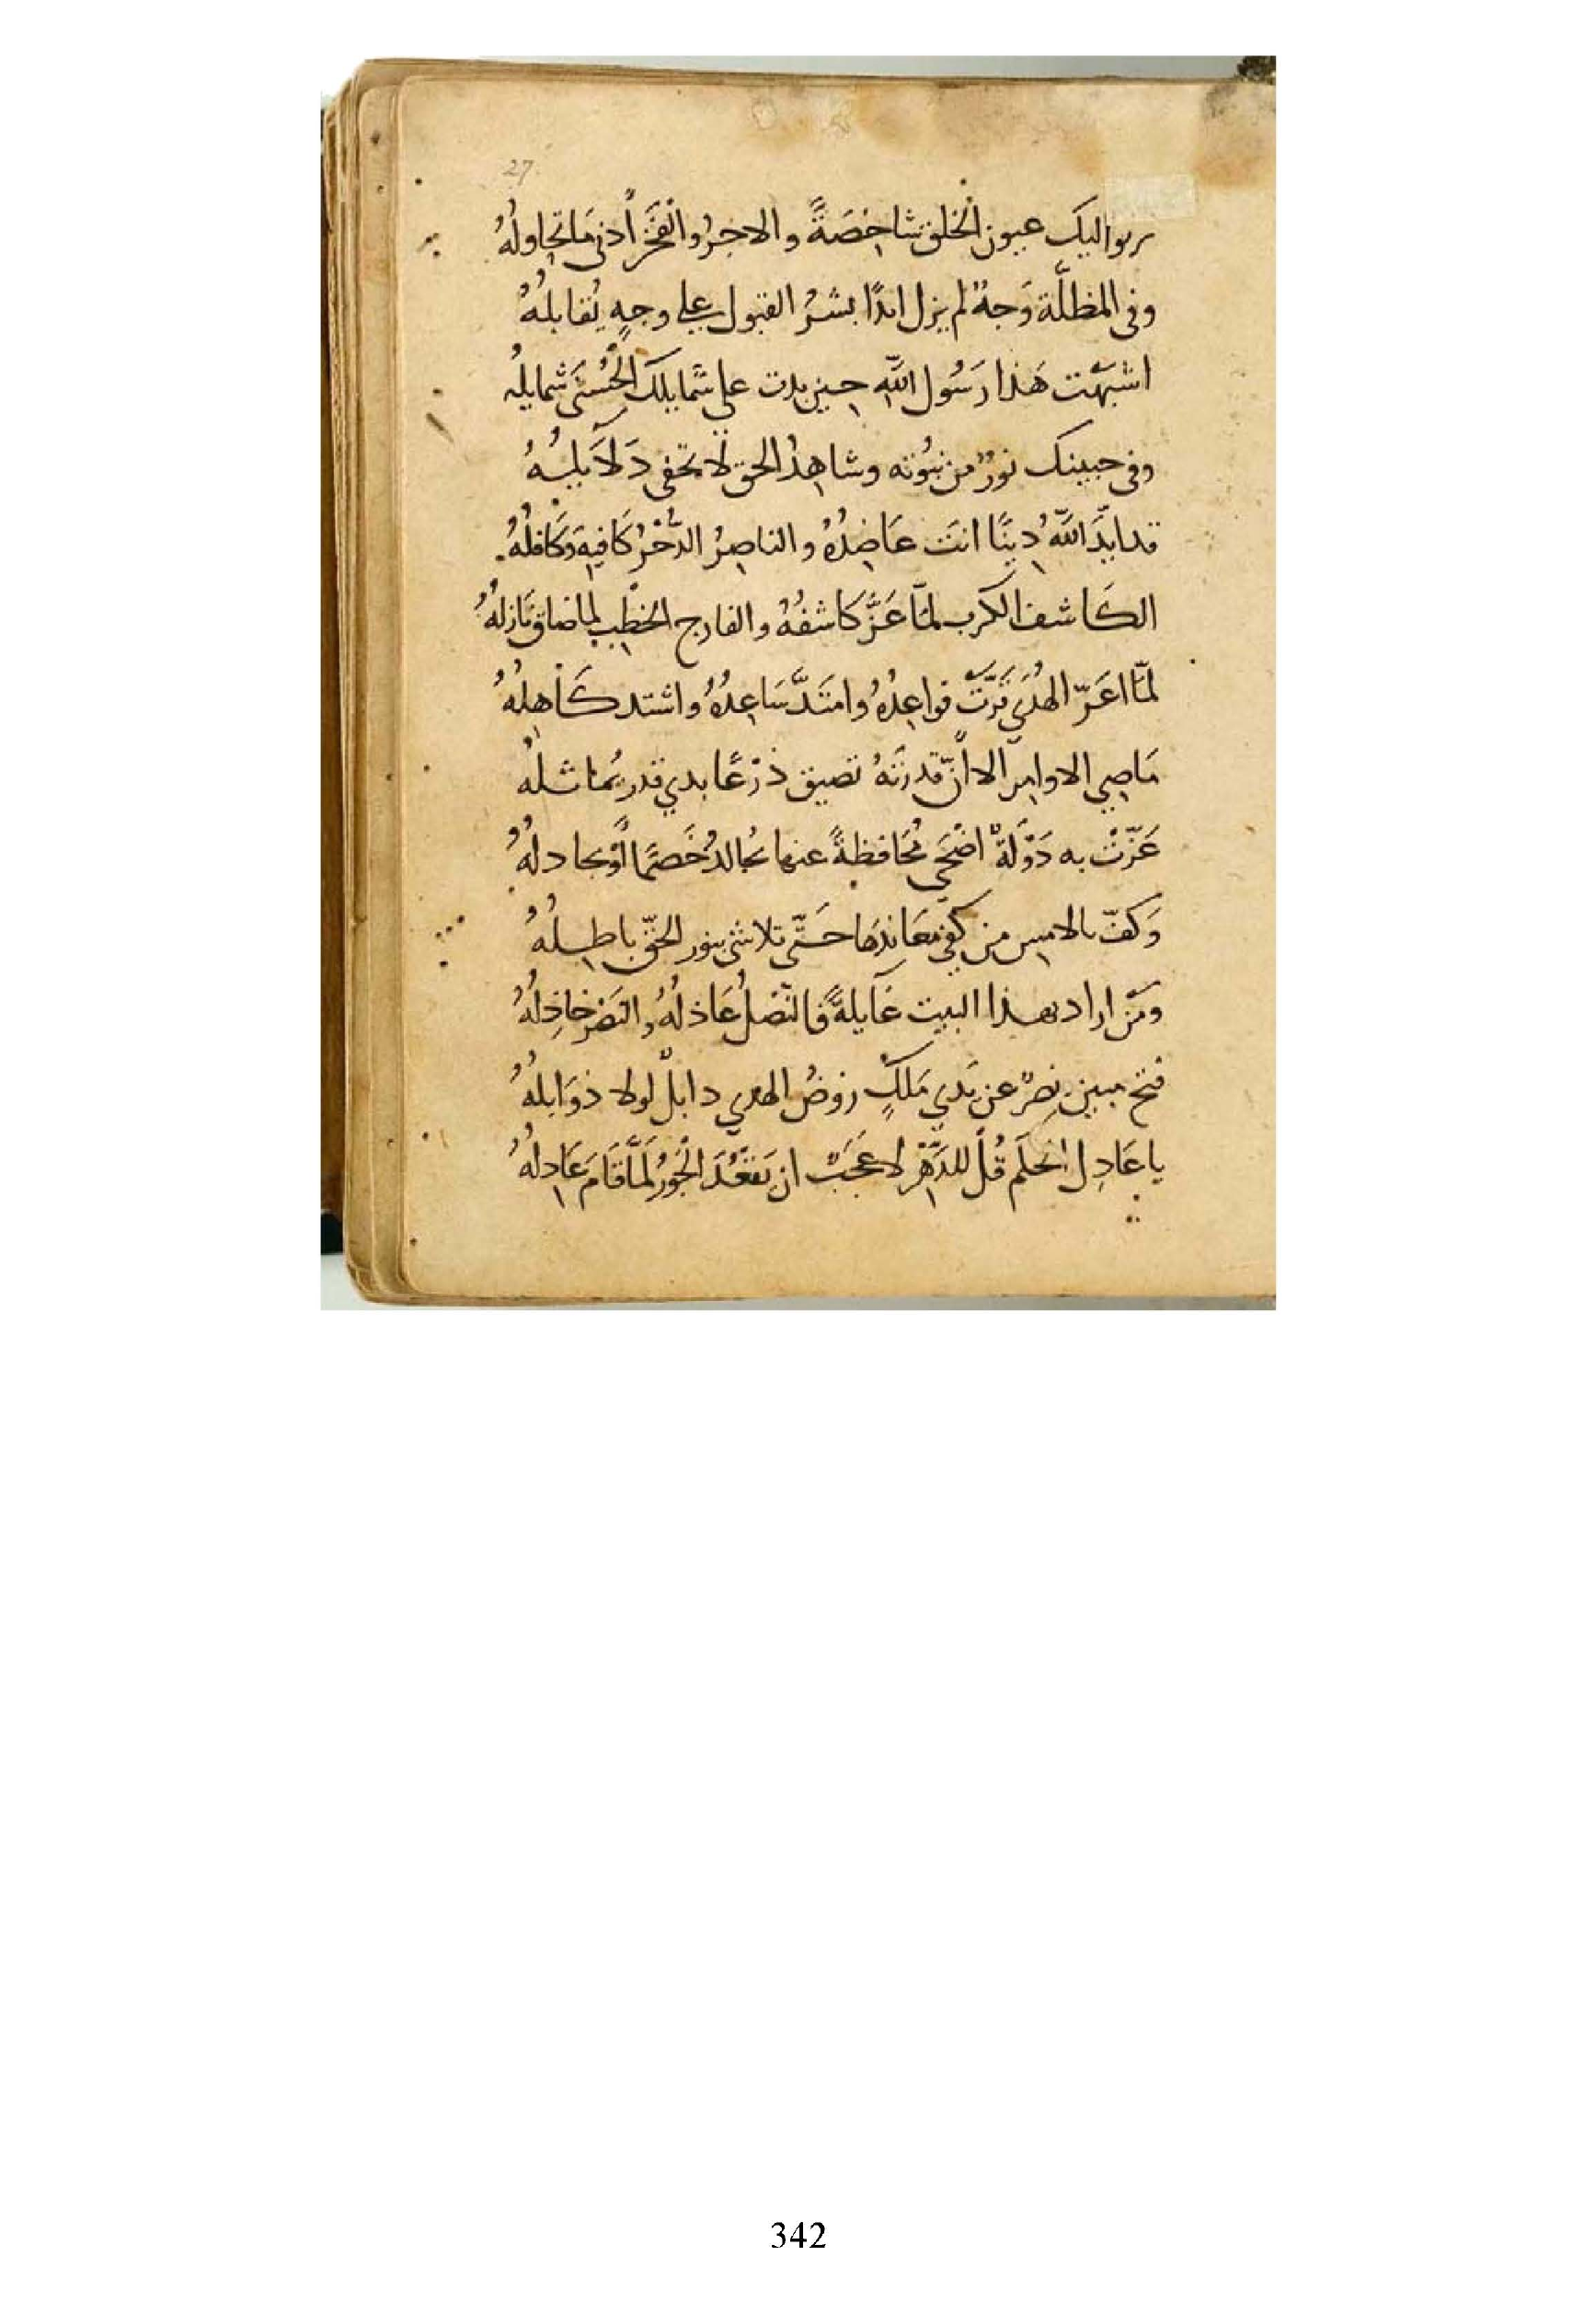 27
يرنوا اليك عيون الخلق شاخِصَةً والاجرُ والفَخرُ أدنى مَا تحاولُهُ
وفى المظلّة وَجهٌ لم يزل ابدًا بشرُ القبول على وجهٍ يُقابلُهُ
اشبَهَت هَذا رَسُول اللَّهِ حِين بدت على شمايلك الحُسْنَى شمايلُه
وفى جبينك نورٌ من نبُوّته وشاهِدُ الحق لا تخفى دَلَايِلُهُ
قد ايَّدَ اللَّهُ دِينًا انتَ عَاضِدُهُ والناصِرُ الدَّخرُ كَافيهِ وَكَافلُهُ
الكَاشف الكرب لمّا عَزَّ كَاشفُهُ والفارج الخطْبِ لما ضاق نَازلُهُ
لمّا اعَزّ الهُدَى قَرَّتْ قواعِدُهُ وامتَدَّ سَاعِدُهُ واشتد كَاهِلُهُ
مَاضِي الاوامِر الا أنّ قدرتَهُ تضيق ذَرْعًا بذي قدر يُماثلُهُ
عَزّتْ به دَوْلَةٌ اضْحَى مُحَافظةً عنها يُجالدُ خَصمًا أوْ يجادلُهُ
وَكفّ بالامسِ من كفى مُعَاندهَا حَتّى تلاشى بنور الحَقّ باطِلُهُ
ومَن اراد بهذا البيت غَآيلةً فالنّصْلُ عَاذلُهُ والنصْر خاذِلُهُ
فتح مبين نصرٌ عن يَدي مَلكٍ رَوضُ الهدي دابلٌ لولا ذوَابلُهُ
يا عَادِل الحكم قُلْ للدَّهْر لا عَجَبٌ ان يَقعُدَ الجَوْرُ لمَّا قَامَ عَادلُهُ
342